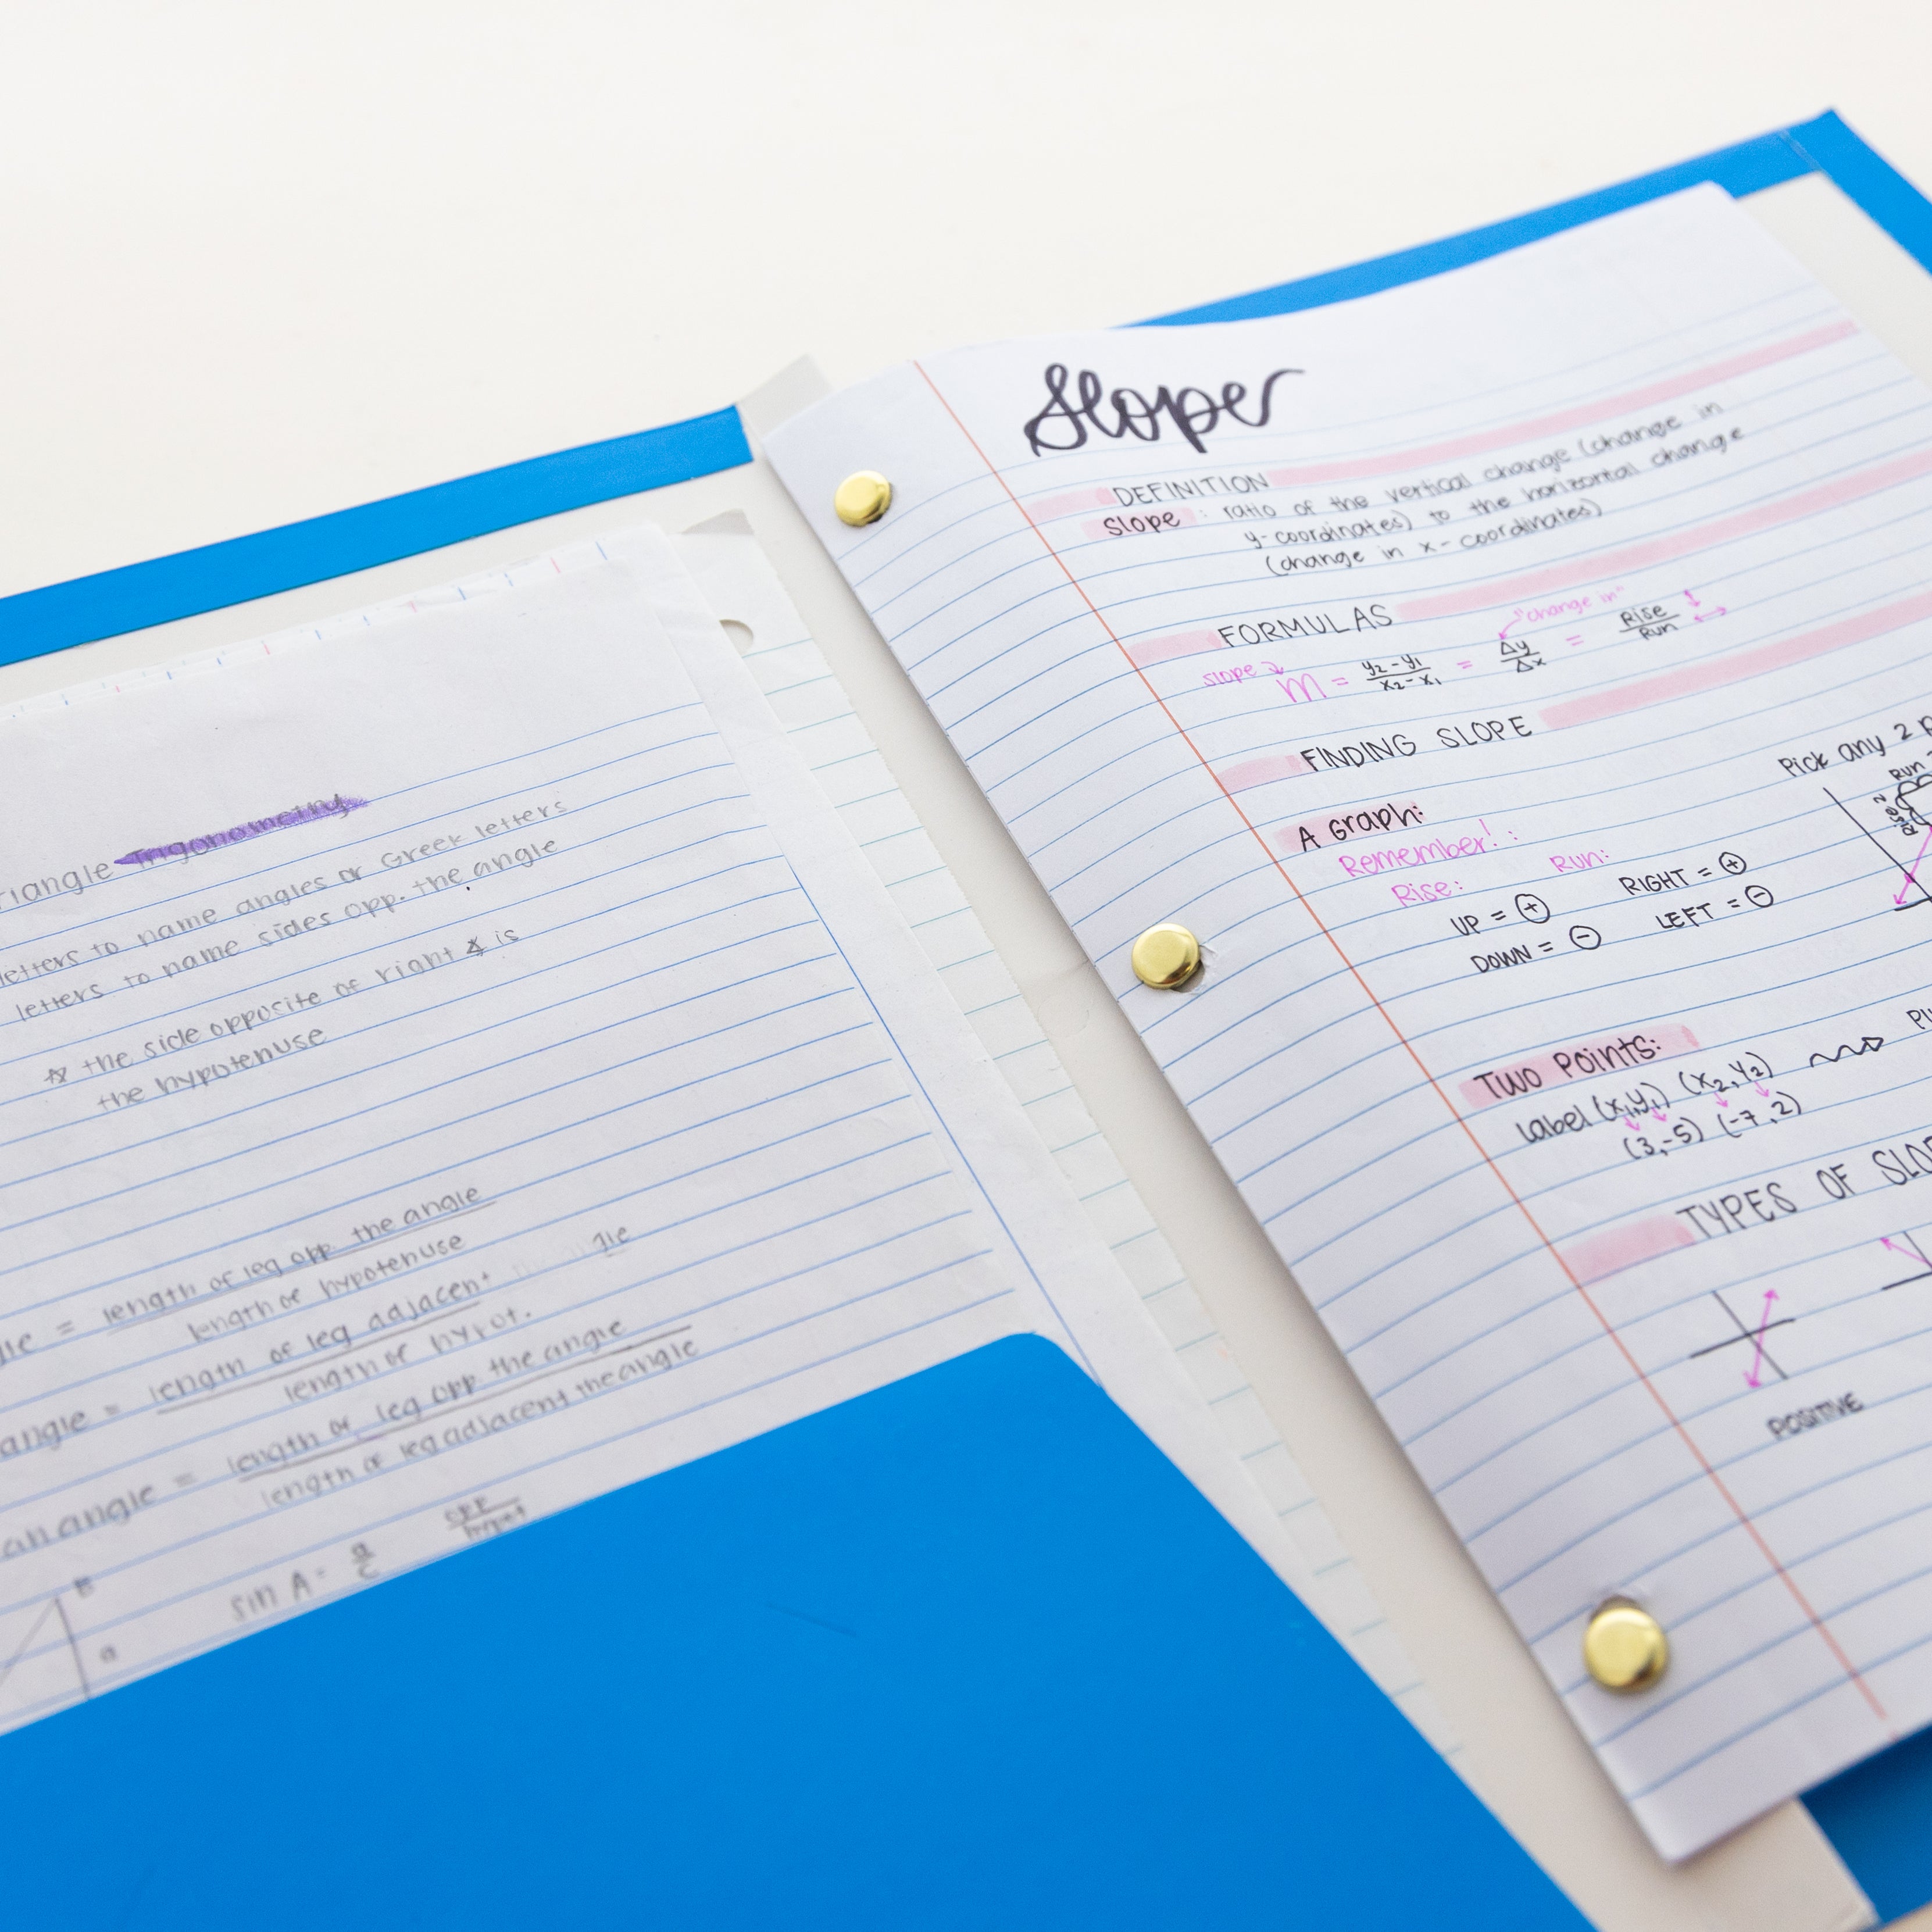 Trigonometry
angle
letters to name angles or Greek letters
letters to name sides opp. the angle
☆ the side opposite of right ∡ is
the hypotenuse
= length of leg opp the angle
length of hypotenuse
angle = length of leg adjacent
length of hypot.
an angle = length of leg opp. the angle
length of leg adjacent the angle
sin A = a/c opp/hypot
B
a
Slope
DEFINITION
Slope : ratio of the vertical change (change in
y-coordinates) to the horizontal change
(change in x-coordinates)
FORMULAS
"change in"
slope m = y₂-y₁/x₂-x₁ = Δy/Δx = Rise/Run
FINDING SLOPE
Pick any 2
Run
Rise
A Graph:
Remember! :
Rise: Run:
UP = ⊕ RIGHT = ⊕
DOWN = ⊖ LEFT = ⊖
TWO POINTS:
Label (x₁,y₁) (x₂,y₂)
(3,-5) (-7,2)
TYPES OF
POSITIVE